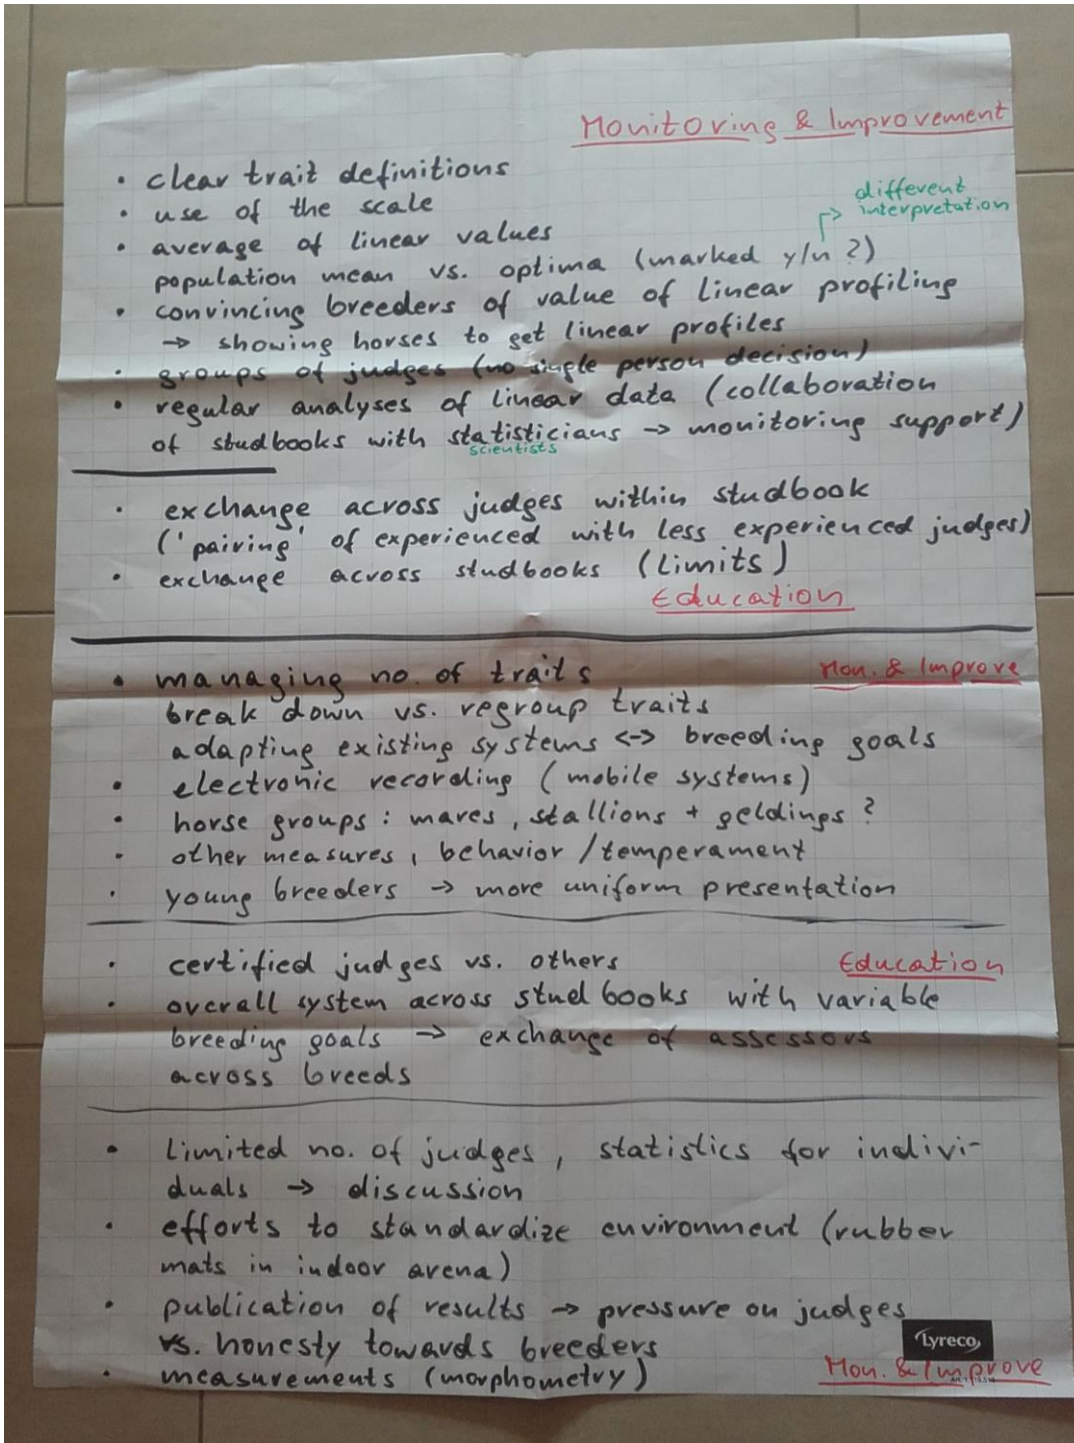 Monitoring & Improvement
• clear trait definitions
different
• use of the scale
interpretation
• average of linear values
population mean vs. optima (marked y/n ?)
• convincing breeders of value of linear profiling
→ showing horses to get linear profiles
• groups of judges (no single person decision)
• regular analyses of linear data (collaboration
of studbooks with statisticians → monitoring support)
scientists
• exchange across judges within studbook
('pairing' of experienced with less experienced judges)
• exchange across studbooks (limits)
Education
• managing no. of traits
Mon. & Improve
break down vs. regroup traits
adapting existing systems <-> breeding goals
• electronic recording (mobile systems)
• horse groups : mares, stallions + geldings ?
• other measures, behavior / temperament
• young breeders → more uniform presentation
• certified judges vs. others
Education
• overall system across studbooks with variable
breeding goals → exchange of assessors
across breeds
• limited no. of judges, statistics for indivi-
duals → discussion
• efforts to standardize environment (rubber
mats in indoor arena)
• publication of results → pressure on judges
vs. honesty towards breeders
Lyreco
• measurements (morphometry)
Mon. & Improve